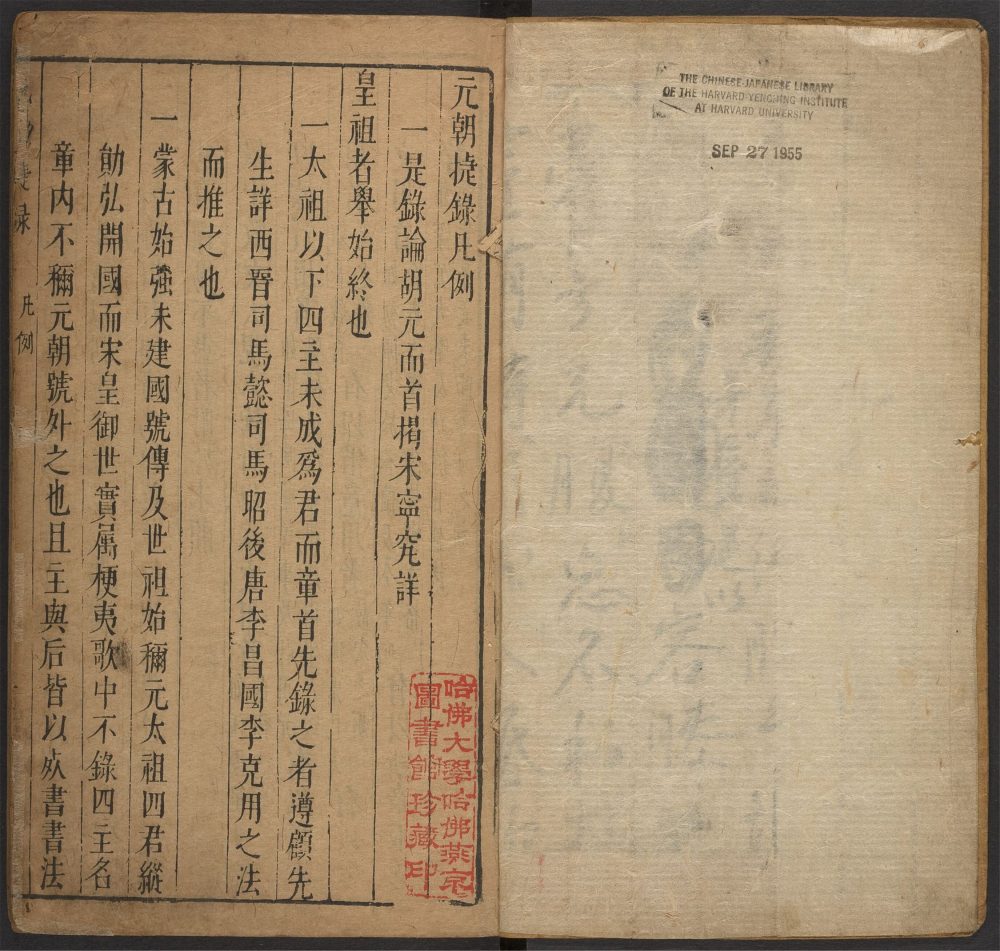 THE CHINESE-JAPANESE LIBRARY
OF THE HARVARD-YENCHING INSTITUTE
AT HARVARD UNIVERSITY
SEP 27 1955
元朝捷錄凡例
一是錄論胡元而首揭宋寧究詳
皇祖者舉始終也
一太祖以下四主未成爲君而章首先錄之者遵顧先
生詳西晉司馬懿司馬昭後唐李昌國李克用之法
而推之也
一蒙古始強未建國號傳及世祖始稱元太祖四君縱
勛弘開國而宋皇御世實属梗夷歌中不錄四主名
章內不稱元朝號外之也且主與后皆以 書書法
錄
凡例
哈佛大學哈佛燕京
圖書館珍藏印